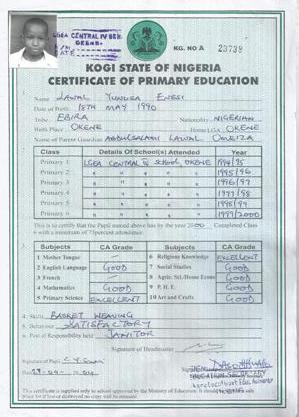 LGEA CENTRAL IV SCH
OKENE
DATE
KG. NO A 23739
KOGI STATE OF NIGERIA
CERTIFICATE OF PRIMARY EDUCATION
Name LAWAL YUNUSA ENESI
Date of Birth 18TH MAY 1990
Tribe EBIRA Nationality NIGERIAN
Birth Place OKENE Home LGA OKENE
Name of Parent/Guardian ABDULSALAMI LAWAL ONEIZA
Class Details Of School(s) Attended Year
Primary 1 LGEA CENTRAL IV SCHOOL OKENE 1994/95
Primary 2 " " " " 1995/96
Primary 3 " " " " 1996/97
Primary 4 " " " " 1997/98
Primary 5 " " " " 1998/99
Primary 6 " " " " 1999/2000
This is to certify that the Pupil named above has by the year 2000 Completed Class
6 with a minimum of 75percent attendance.
Subjects CA Grade Subjects CA Grade
1 Mother Tongue - 6 Religious Knowledge EXCELLENT
2 English Language GOOD 7 Social Studies GOOD
3 French - 8 Agric. Sci./Home Econs GOOD
4 Mathematics GOOD 9 P. H. E. GOOD
5 Primary Science EXCELLENT 10 Art and Crafts GOOD
Skills BASKET WEAVING
Behaviour SATISFACTORY
Post of Responsibility held JANITOR
Signature of Headmaster
Signature of Pupil
Date
EDUCATION SECRETARY
This certificate is supplied only to school approved by the Ministry of Education. It should be